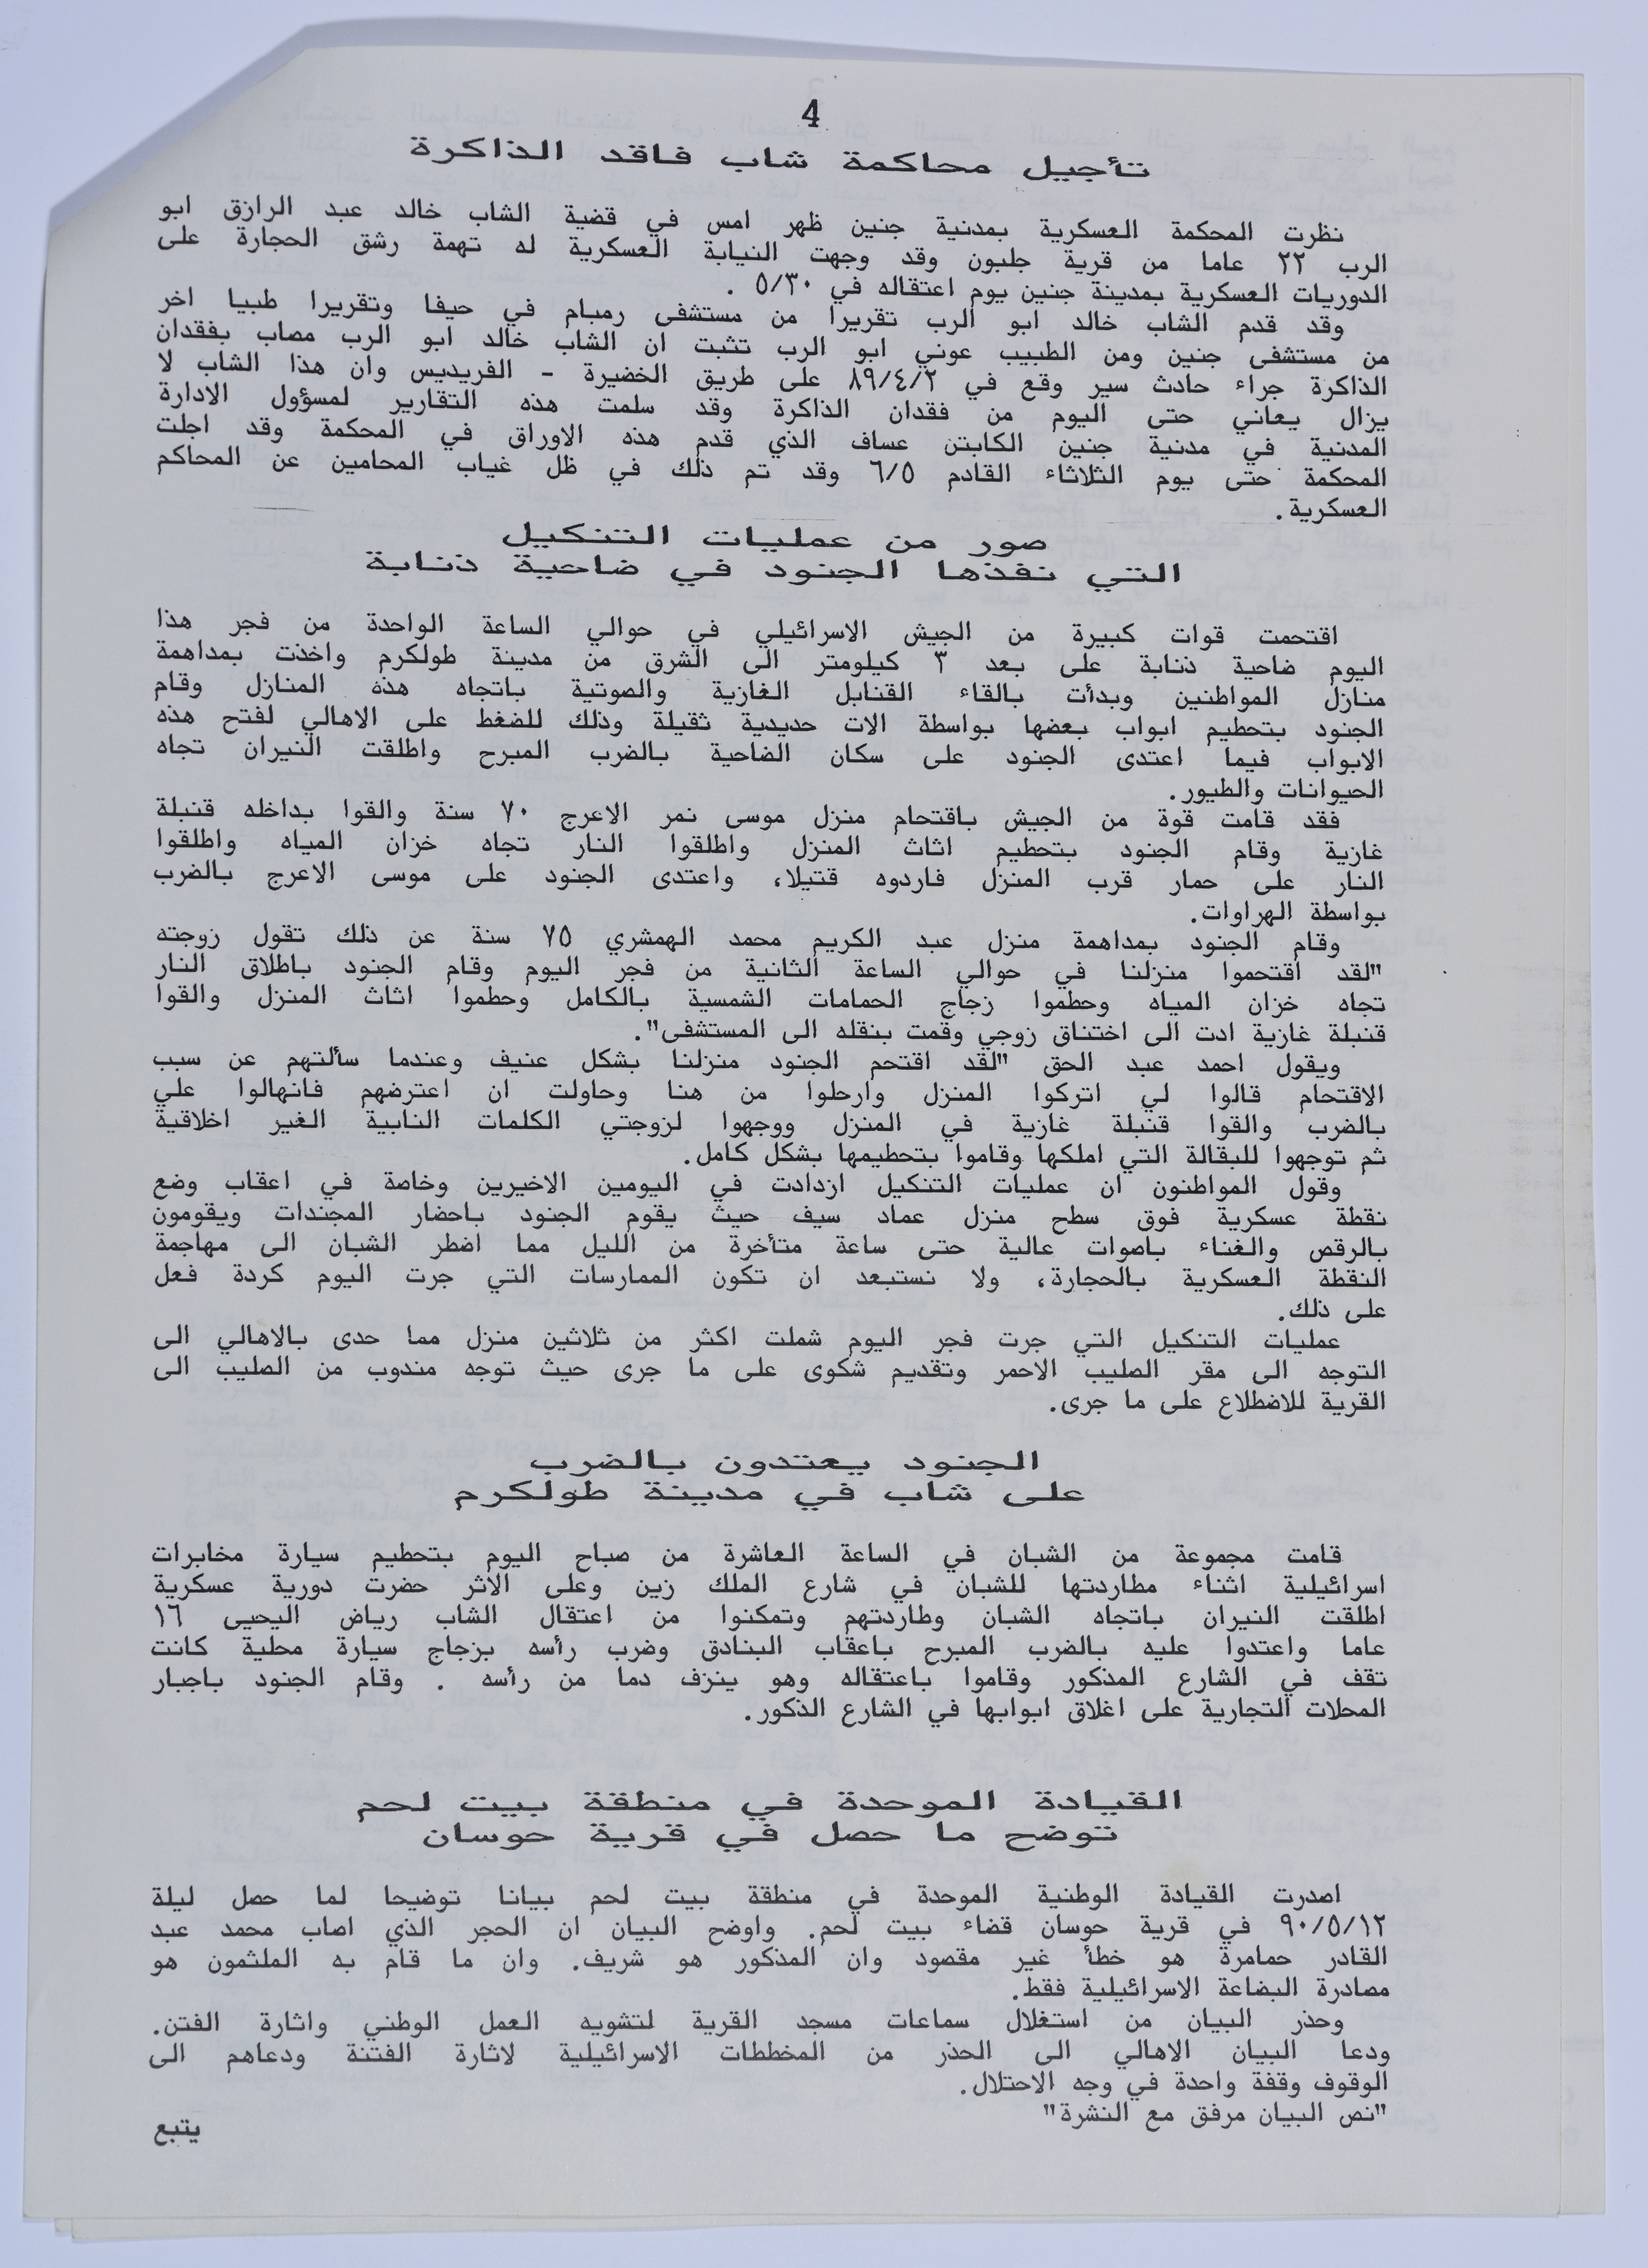 4
تأجيل محاكمة شاب فاقد الذاكرة
نظرت المحكمة العسكرية بمدنية جنين ظهر امس في قضية الشاب خالد عبد الرازق ابو
الرب ٢٢ عاما من قرية جلبون وقد وجهت النيابة العسكرية له تهمة رشق الحجارة على
الدوريات العسكرية بمدينة جنين يوم اعتقاله في ٥/٣٠ .
وقد قدم الشاب خالد ابو الرب تقريرا من مستشفى رمبام في حيفا وتقريرا طبيا اخر
من مستشفى جنين ومن الطبيب عوني ابو الرب تثبت ان الشاب خالد ابو الرب مصاب بفقدان
الذاكرة جراء حادث سير وقع في ٨٩/٤/٢ على طريق الخضيرة - الفريديس وان هذا الشاب لا
يزال يعاني حتى اليوم من فقدان الذاكرة وقد سلمت هذه التقارير لمسؤول الادارة
المدنية في مدنية جنين الكابتن عساف الذي قدم هذه الاوراق في المحكمة وقد اجلت
المحكمة حتى يوم الثلاثاء القادم ٦/٥ وقد تم ذلك في ظل غياب المحامين عن المحاكم
العسكرية.
صور من عمليات التنكيل
التي نفذها الجنود في ضاحية ذنابة
اقتحمت قوات كبيرة من الجيش الاسرائيلي في حوالي الساعة الواحدة من فجر هذا
اليوم ضاحية ذنابة على بعد ٣ كيلومتر الى الشرق من مدينة طولكرم واخذت بمداهمة
منازل المواطنين وبدأت بالقاء القنابل الغازية والصوتية باتجاه هذه المنازل وقام
الجنود بتحطيم ابواب بعضها بواسطة الات حديدية ثقيلة وذلك للضغط على الاهالي لفتح هذه
الابواب فيما اعتدى الجنود على سكان الضاحية بالضرب المبرح واطلقت النيران تجاه
الحيوانات والطيور.
فقد قامت قوة من الجيش باقتحام منزل موسى نمر الاعرج ٧٠ سنة والقوا بداخله قنبلة
غازية وقام الجنود بتحطيم اثاث المنزل واطلقوا النار تجاه خزان المياه واطلقوا
النار على حمار قرب المنزل فاردوه قتيلا، واعتدى الجنود على موسى الاعرج بالضرب
بواسطة الهراوات.
وقام الجنود بمداهمة منزل عبد الكريم محمد الهمشري ٧٥ سنة عن ذلك تقول زوجته
"لقد اقتحموا منزلنا في حوالي الساعة الثانية من فجر اليوم وقام الجنود باطلاق النار
تجاه خزان المياه وحطموا زجاج الحمامات الشمسية بالكامل وحطموا اثاث المنزل والقوا
قنبلة غازية ادت الى اختناق زوجي وقمت بنقله الى المستشفى".
ويقول احمد عبد الحق "لقد اقتحم الجنود منزلنا بشكل عنيف وعندما سألتهم عن سبب
الاقتحام قالوا لي اتركوا المنزل وارحلوا من هنا وحاولت ان اعترضهم فانهالوا علي
بالضرب والقوا قنبلة غازية في المنزل ووجهوا لزوجتي الكلمات النابية الغير اخلاقية
ثم توجهوا للبقالة التي املكها وقاموا بتحطيمها بشكل كامل.
وقول المواطنون ان عمليات التنكيل ازدادت في اليومين الاخيرين وخاصة في اعقاب وضع
نقطة عسكرية فوق سطح منزل عماد سيف حيث يقوم الجنود باحضار المجندات ويقومون
بالرقص والغناء باصوات عالية حتى ساعة متأخرة من الليل مما اضطر الشبان الى مهاجمة
النقطة العسكرية بالحجارة، ولا نستبعد ان تكون الممارسات التي جرت اليوم كردة فعل
على ذلك.
عمليات التنكيل التي جرت فجر اليوم شملت اكثر من ثلاثين منزل مما حدى بالاهالي الى
التوجه الى مقر الصليب الاحمر وتقديم شكوى على ما جرى حيث توجه مندوب من الصليب الى
القرية للاضطلاع على ما جرى.
الجنود يعتدون بالضرب
على شاب في مدينة طولكرم
قامت مجموعة من الشبان في الساعة العاشرة من صباح اليوم بتحطيم سيارة مخابرات
اسرائيلية اثناء مطاردتها للشبان في شارع الملك زين وعلى الاثر حضرت دورية عسكرية
اطلقت النيران باتجاه الشبان وطاردتهم وتمكنوا من اعتقال الشاب رياض اليحيى ١٦
عاما واعتدوا عليه بالضرب المبرح باعقاب البنادق وضرب رأسه بزجاج سيارة محلية كانت
تقف في الشارع المذكور وقاموا باعتقاله وهو ينزف دما من رأسه . وقام الجنود باجبار
المحلات التجارية على اغلاق ابوابها في الشارع الذكور.
القيادة الموحدة في منطقة بيت لحم
توضح ما حصل في قرية حوسان
اصدرت القيادة الوطنية الموحدة في منطقة بيت لحم بيانا توضيحا لما حصل ليلة
٩٠/٥/١٢ في قرية حوسان قضاء بيت لحم. واوضح البيان ان الحجر الذي اصاب محمد عبد
القادر حمامرة هو خطأ غير مقصود وان المذكور هو شريف. وان ما قام به الملثمون هو
مصادرة البضاعة الاسرائيلية فقط.
وحذر البيان من استغلال سماعات مسجد القرية لتشويه العمل الوطني واثارة الفتن.
ودعا البيان الاهالي الى الحذر من المخططات الاسرائيلية لاثارة الفتنة ودعاهم الى
الوقوف وقفة واحدة في وجه الاحتلال.
"نص البيان مرفق مع النشرة"
يتبع